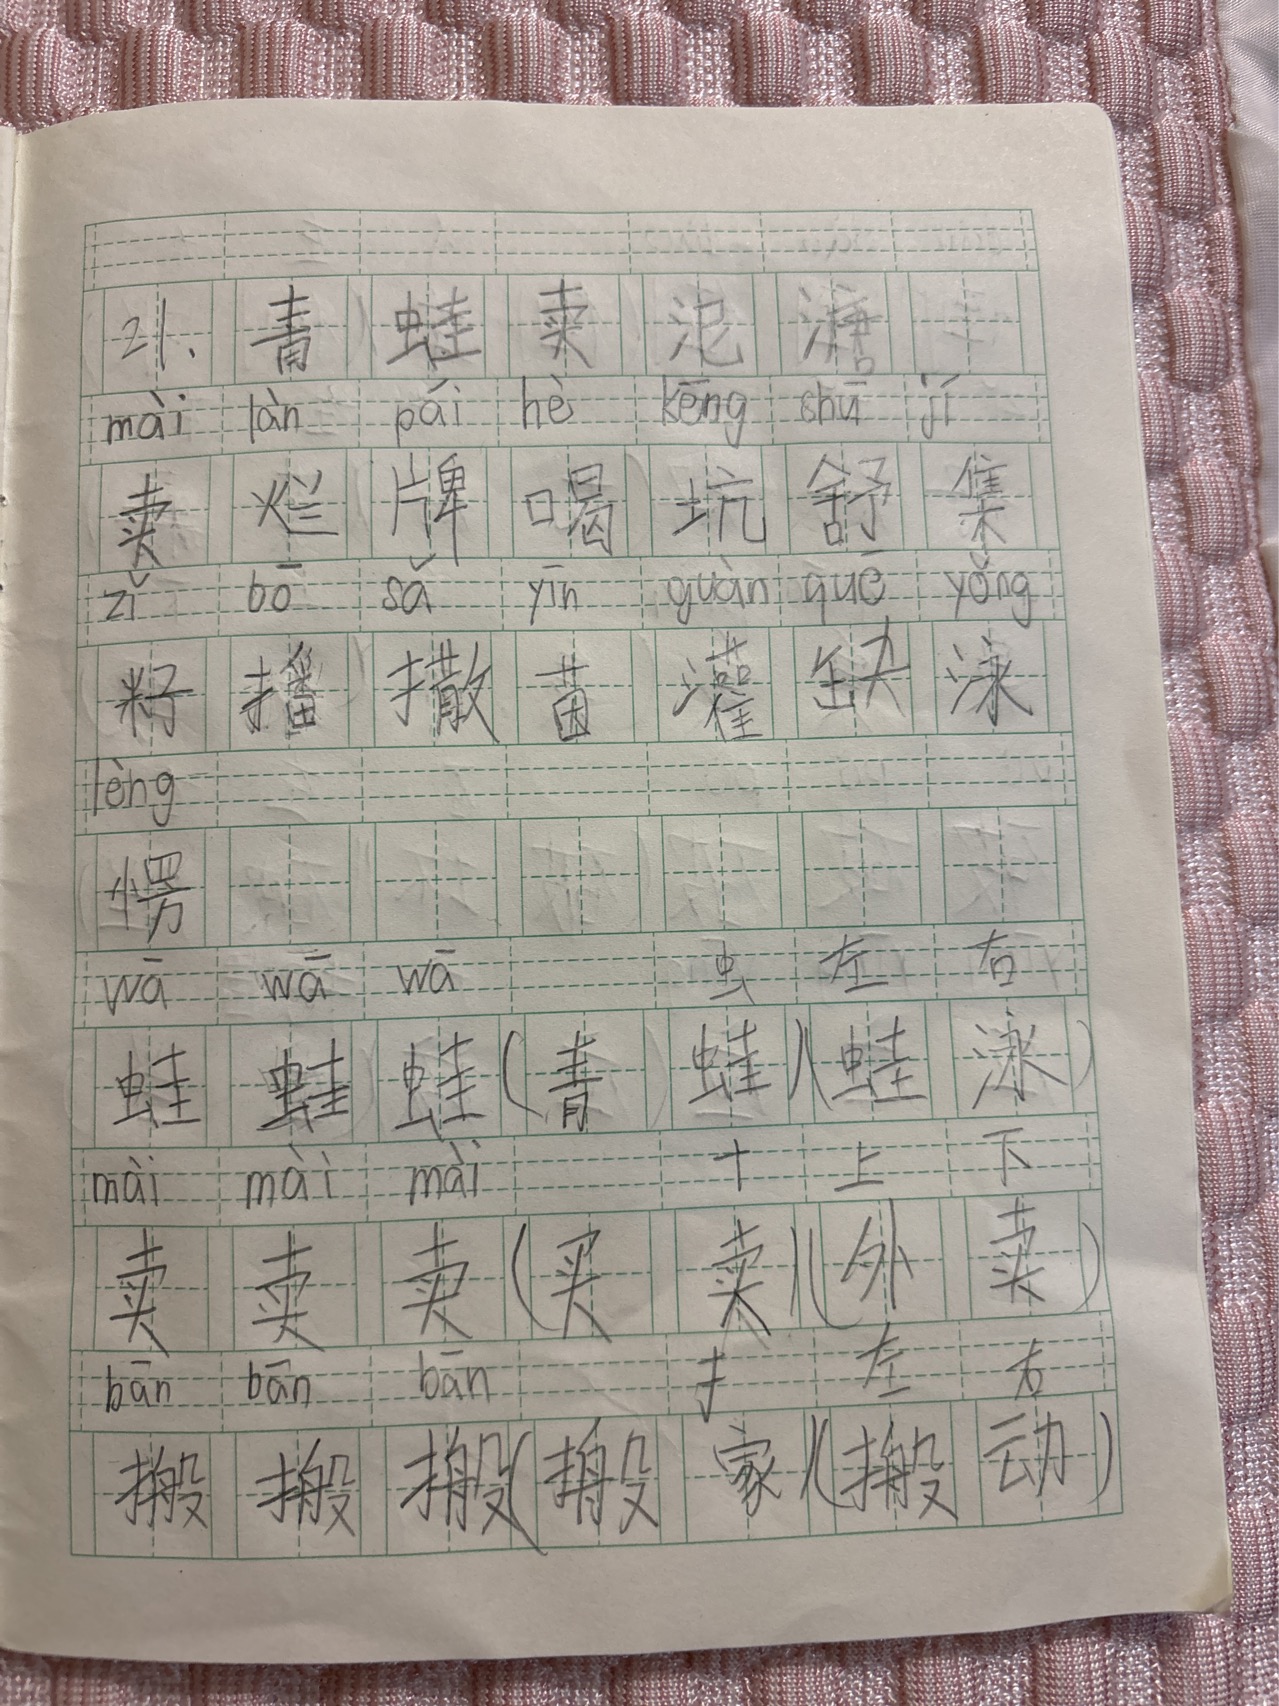 21. 青 蛙 卖 泥 塘
mài làn pái hè kēng shū jí
卖 烂 牌 喝 坑 舒 集
zǐ bō sǎ yīn guàn quē yǒng
籽 播 撒 茵 灌 缺 泳
lèng
愣
wā wā wā 虫 左 右
蛙 蛙 蛙 (青 蛙)(蛙 泳)
mài mài mài 十 上 下
卖 卖 卖 (买 卖)(外 卖)
bān bān bān 扌 左 右
搬 搬 搬 (搬 家)(搬 动)